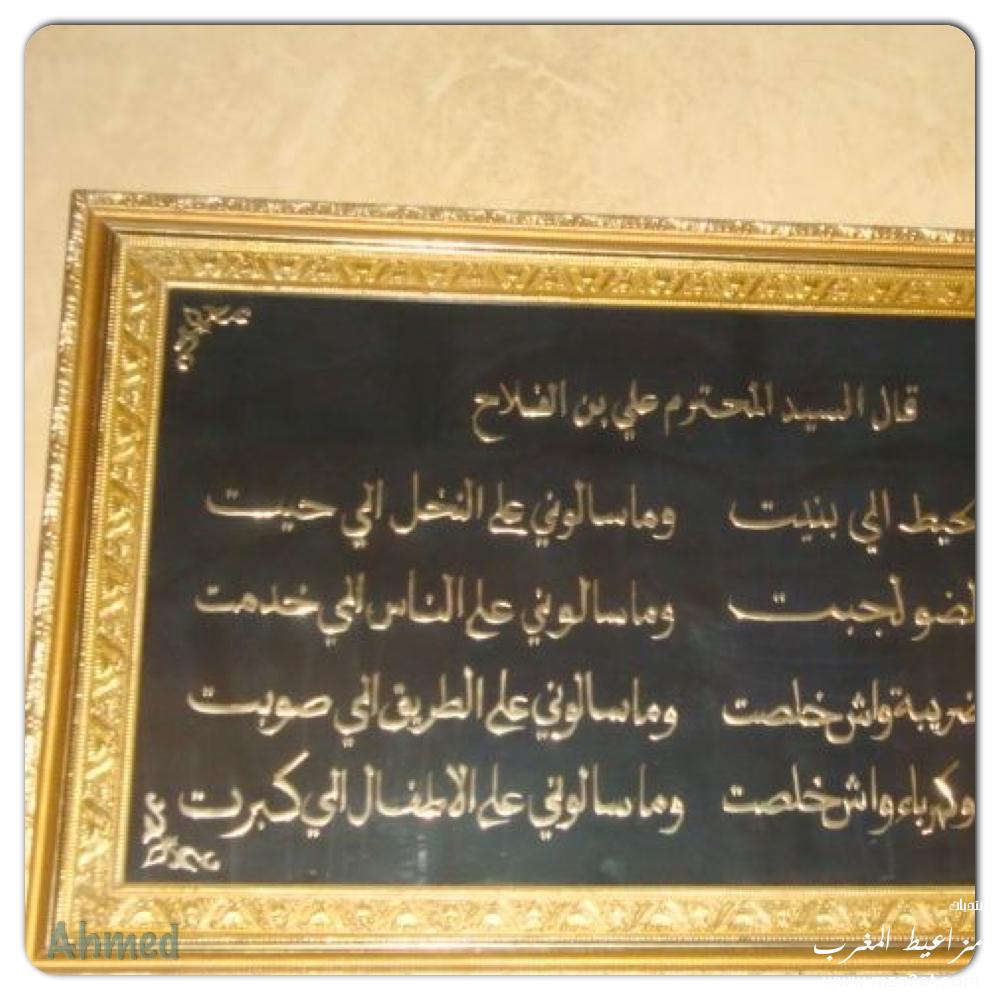 قال السيد المحترم علي بن الفلاح
الي بنيت وماسالوني على النخل الي حييت
لجبت وماسالوني على الناس الي خدمت
واش خلصت وماسالوني على الطريق الي صوبت
وكهرباء واش خلصت وماسالوني على الاطفال الي كبرت
Ahmed
مزاعيط المغرب